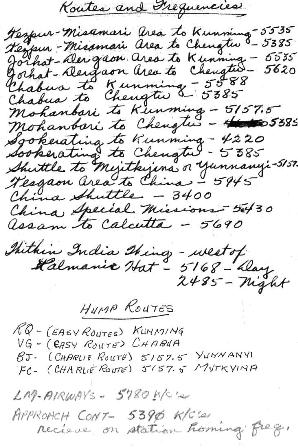 Routes and Frequencies
Tezpur-Misamari Area to Kunming-5535
Tezpur-Misamari Area to Chengtu-5385
Jorhat-Dergaon Area to Kunming-5535
Jorhat-Dergaon Area to Chengtu-5620
Chabua to Kunming-5558
Chabua to Chengtu 5385
Mohanbari to Kunming-5157.5
Mohanbari to Chengtu-5385
Sookerating to Kunming-4220
Sookerating to Chengtu-5385
Shuttle to Myitkyina or Yunnanyi-5157.
Tezgaon Area to China-5945
China Shuttle-3400
China Special Missions-5430
Assam to Calcutta-5690
Within India Wing-west of
Lalmanir Hat-5168-Day
2485-Night
HUMP ROUTES
RQ-(EASY ROUTES) KUNMING
VG-(EASY ROUTE) CHABUA
BJ-(CHARLIE ROUTE) 5157.5 YUNNANYI
FC-(CHARLIE ROUTE) 5157.5 MYTKYINA
AIRWAYS-5780 K/c's
APPROACH CONT-5390 K/c's
recieve on station homing freq.